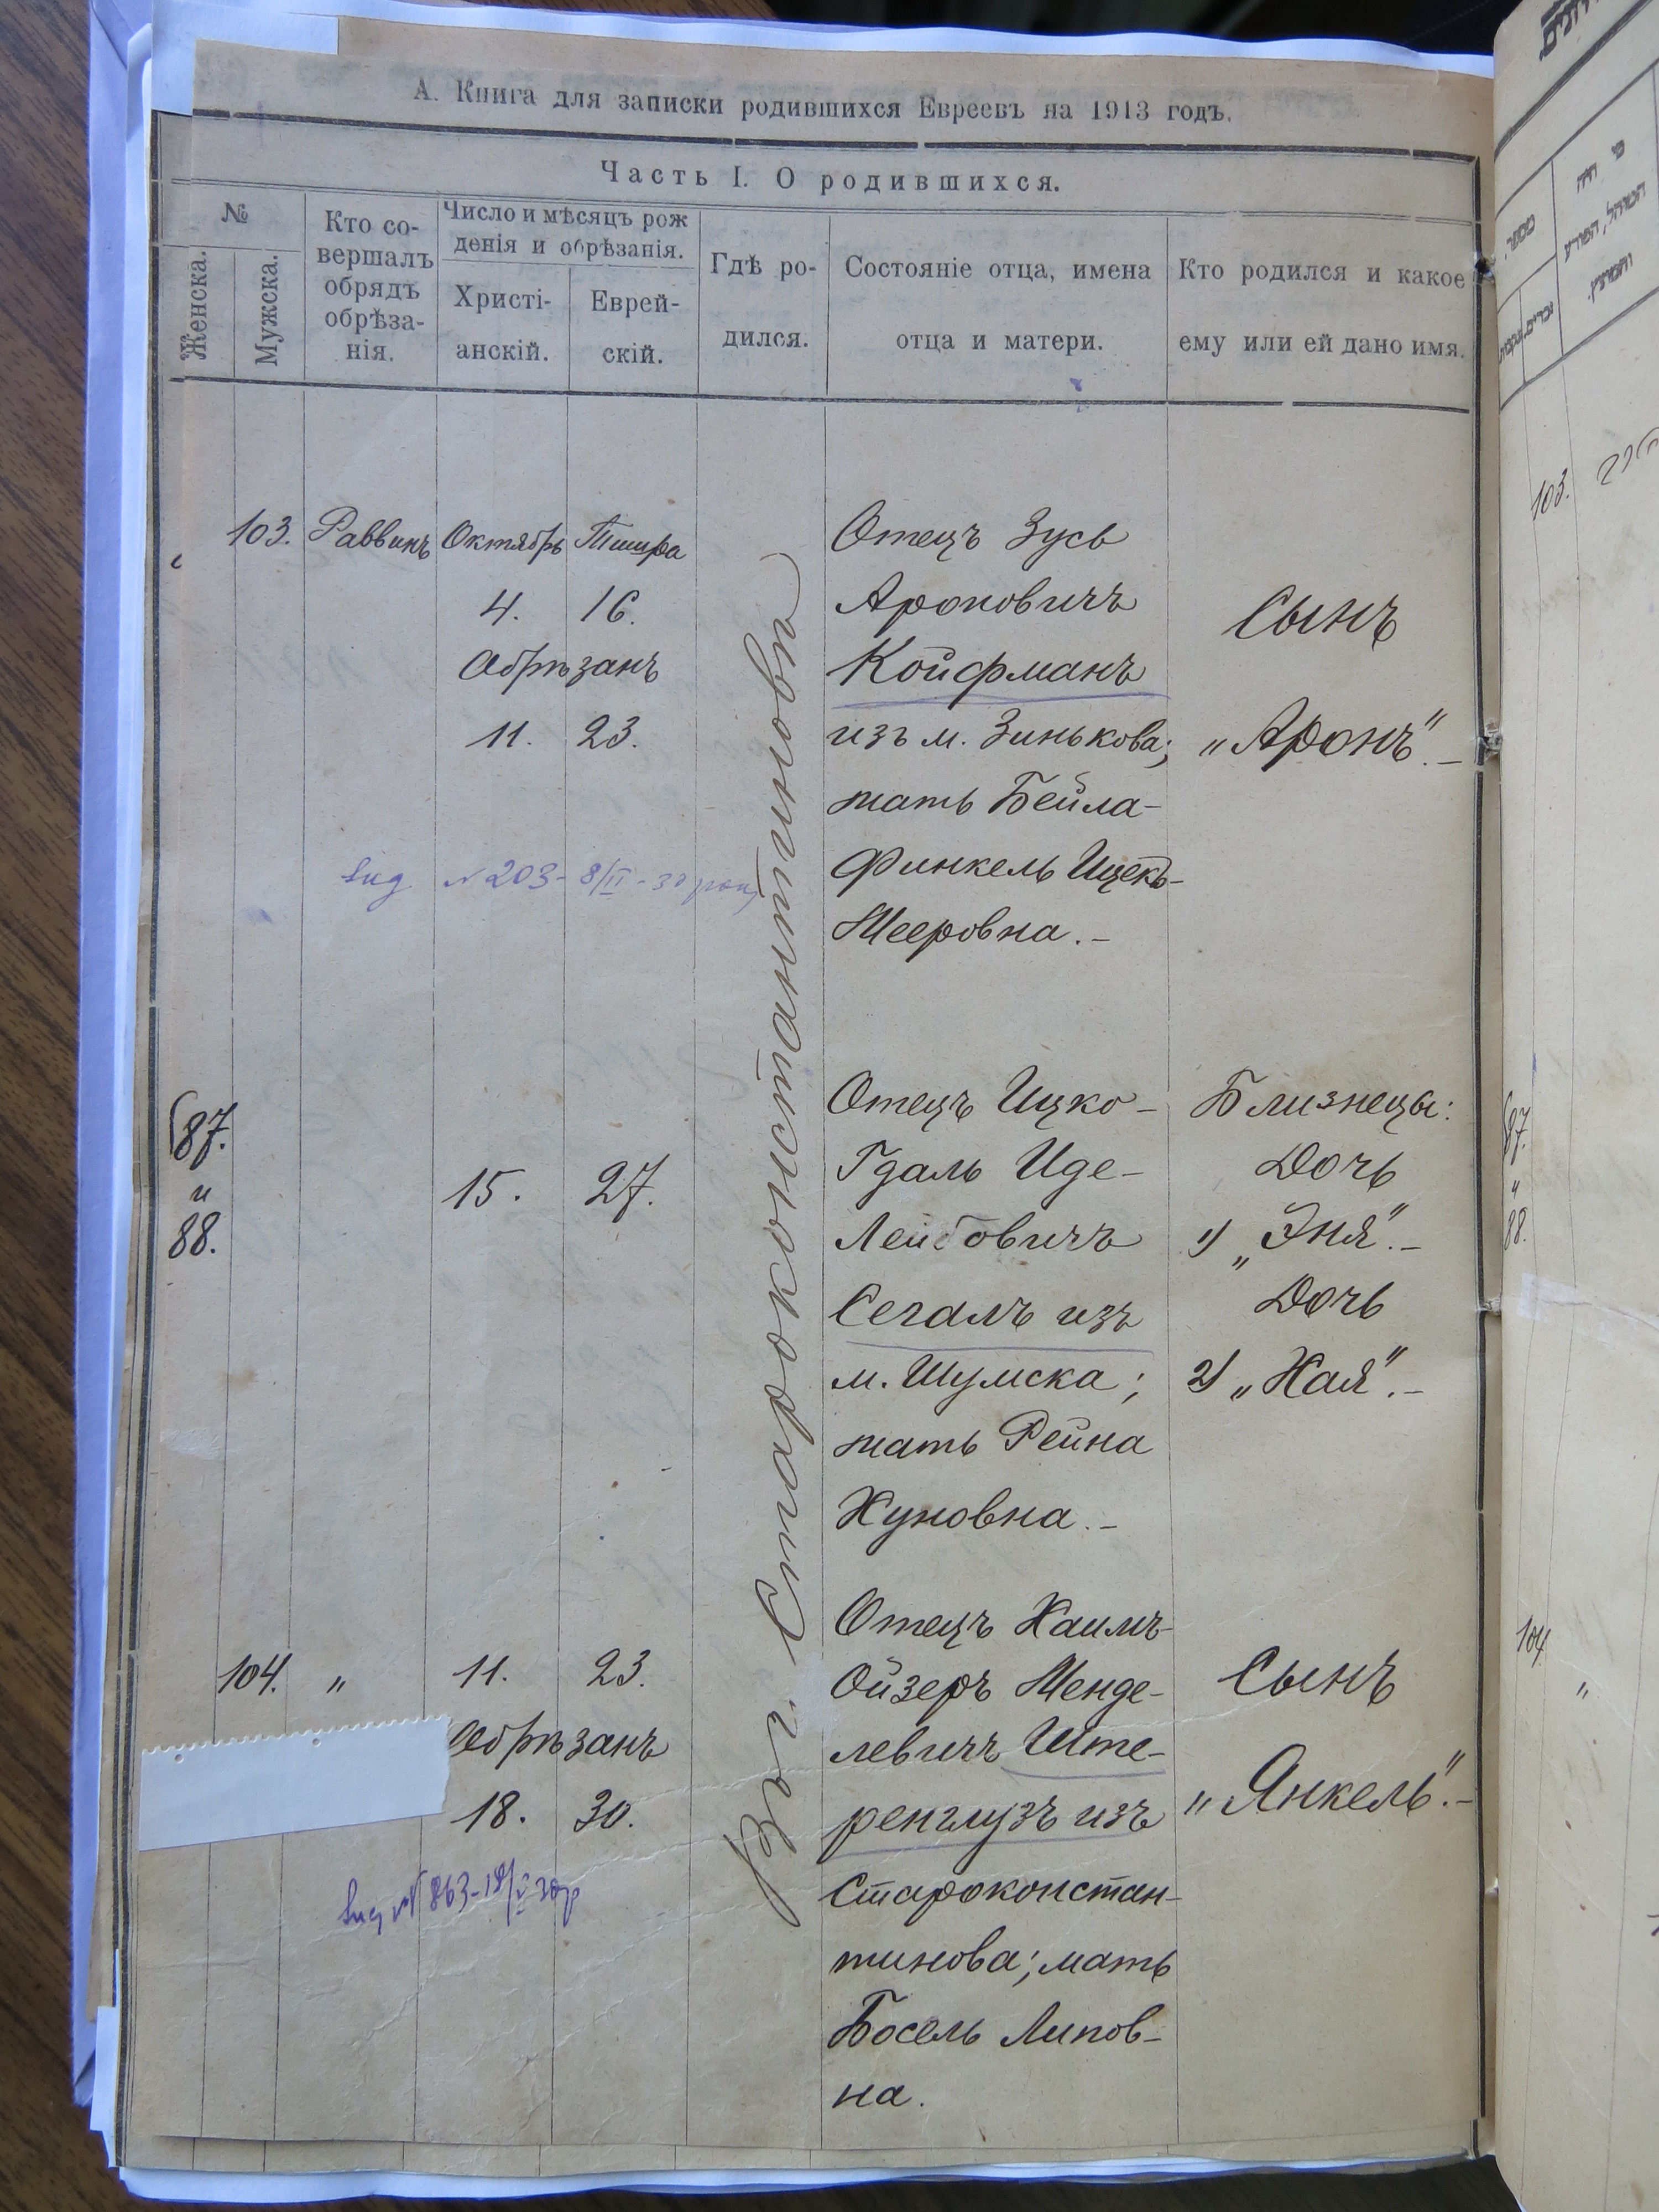 А. Книга для записки родившихся Евреевъ на 1913 годъ.
Часть I. О родившихся.
№
Женска.
Мужска.
Кто со-
вершалъ
обрядъ
обрѣза-
нія.
Число и мѣсяцъ рож
денія и обрѣзанія.
Христі-
анскій.
Еврей-
скій.
Гдѣ ро-
дился.
Состояніе отца, имена
отца и матери.
Кто родился и какое
ему или ей дано имя.
103. Раввинъ Октябрь Тишра
4. 16.
Обрѣзанъ
11. 23.
Отецъ Зусь
Ароновичъ
Койфманъ
изъ м. Зинькова;
мать Бейла-
Финкель Ицекъ-
Мееровна.-
Сынъ
„Аронъ".-
№ 203- 8/II - 30
Въ г. Староконстантиновѣ
87.
и
88.
15. 27.
Отецъ Ицко-
Гдаль Иде-
Лейбовичъ
Сегалъ изъ
м. Шумска;
мать Рейна
Хуновна.-
Близнецы:
Дочь
1) „Эня".-
Дочь
2) „Хая".-
104. „ 11. 23.
Обрѣзанъ
18. 30.
Отецъ Хаимъ-
Ойзеръ Менде-
левичъ Ште-
ренглузъ изъ
Староконстан-
тинова; мать
Босель Липов-
на.
Сынъ
„Янкель".-
103.
87.
"
88.
104.
"